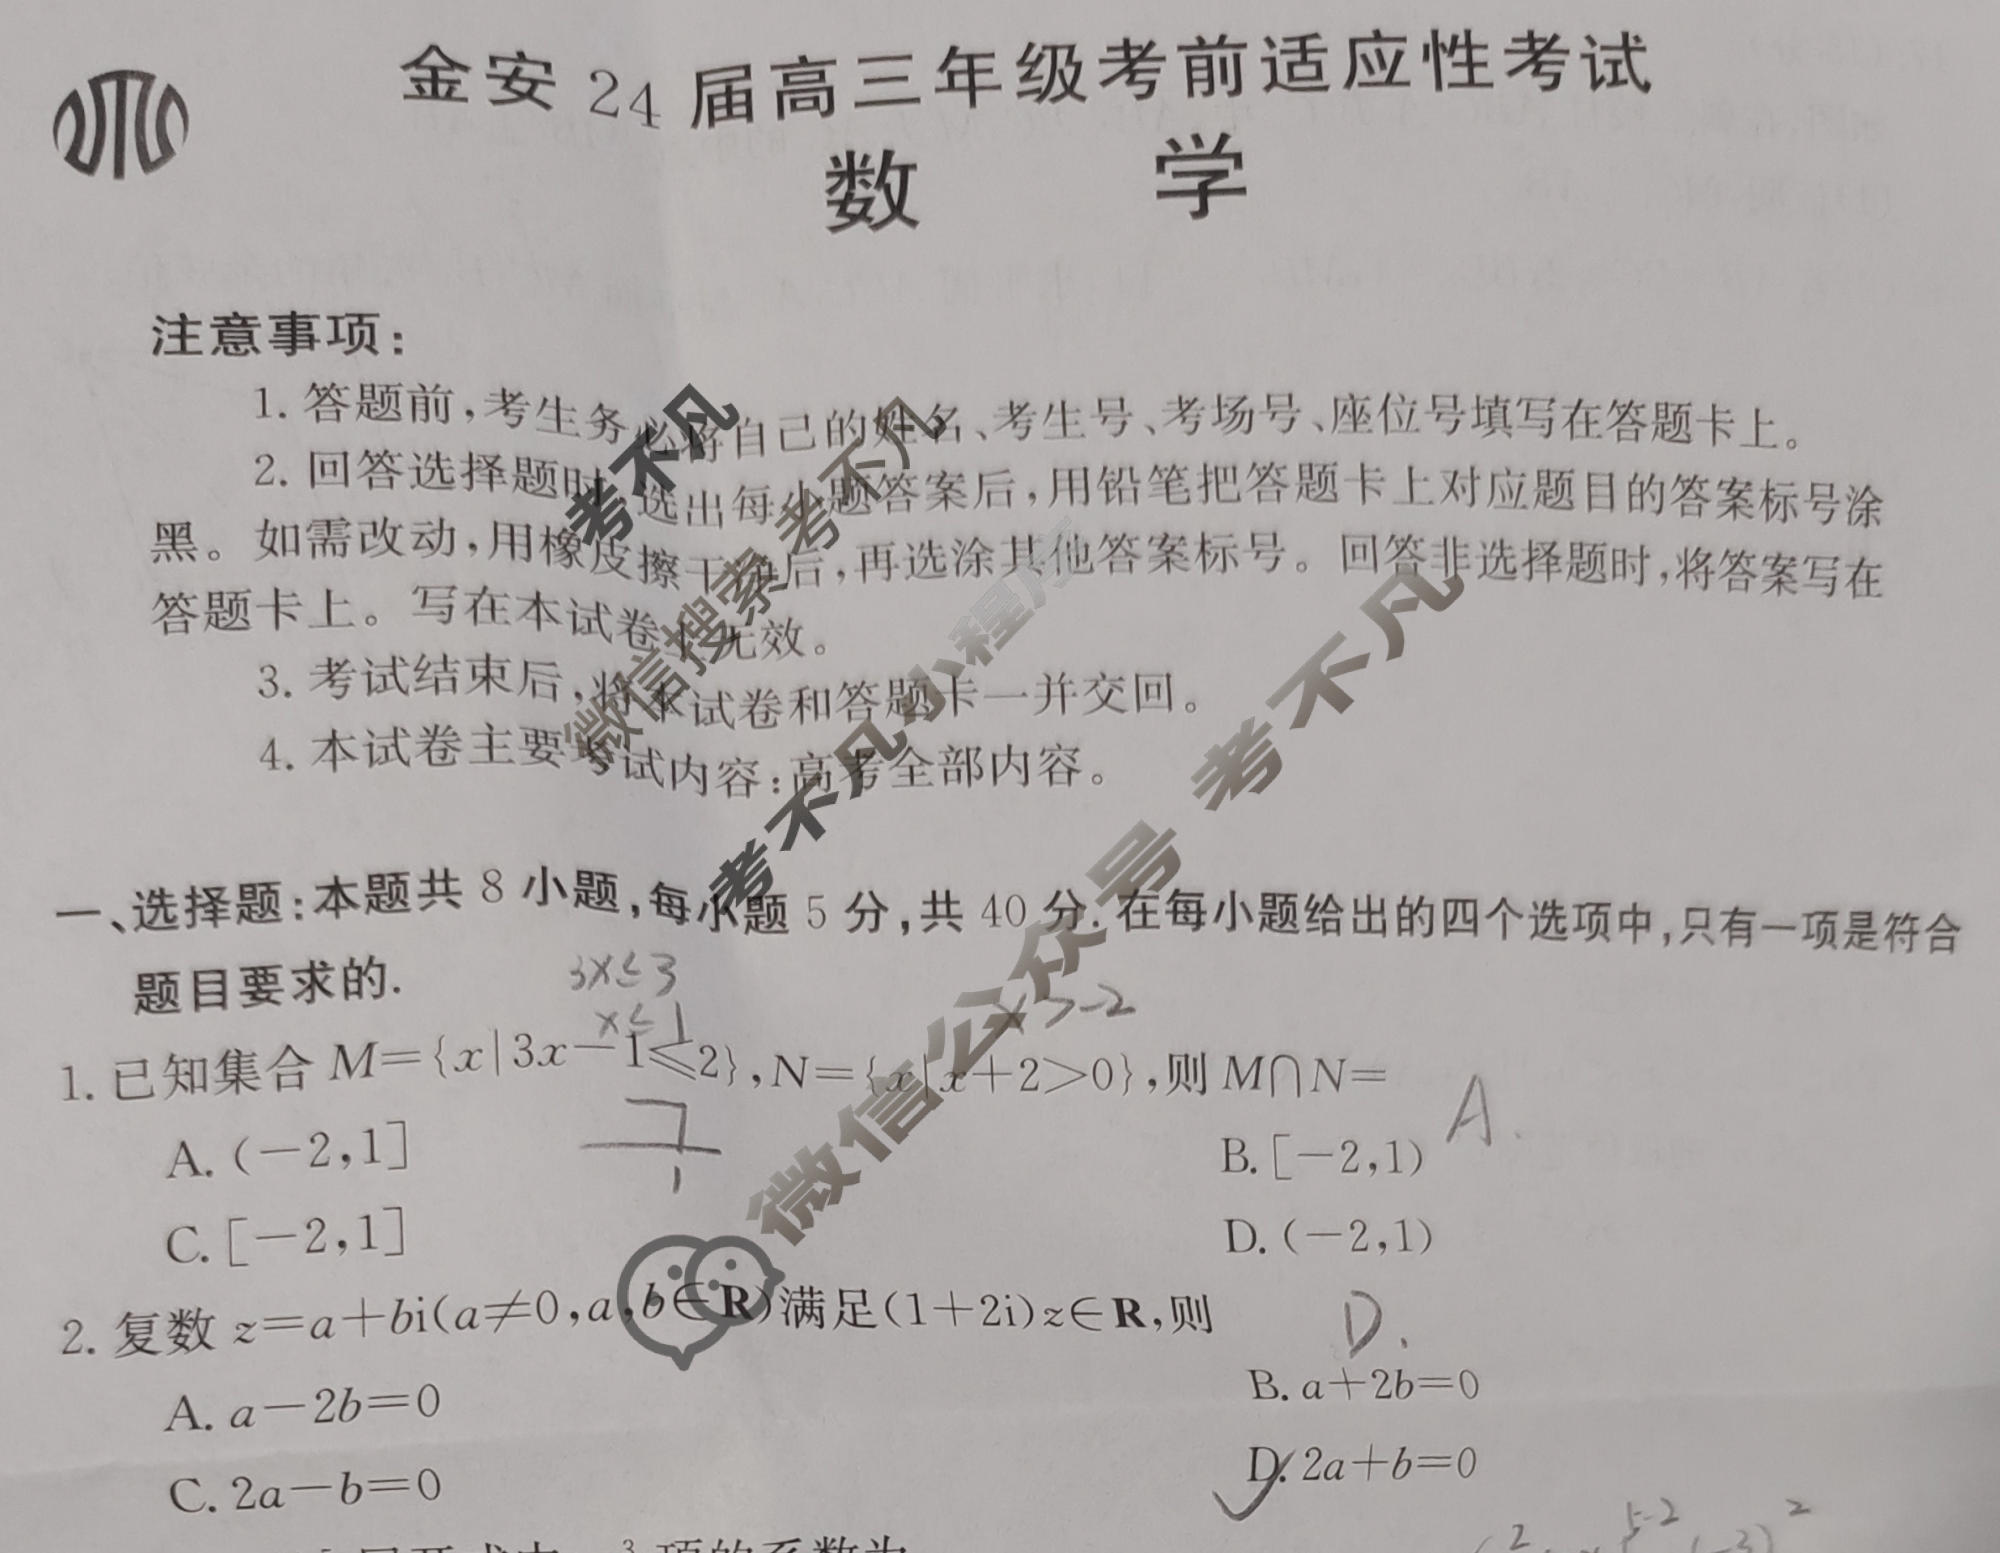 金安24届高三年级考前适应性考试
数 学
注意事项：
1. 答题前,考生务必将自己的姓名、考生号、考场号、座位号填写在答题卡上。
2. 回答选择题时,选出每小题答案后,用铅笔把答题卡上对应题目的答案标号涂
黑。如需改动,用橡皮擦干净后,再选涂其他答案标号。回答非选择题时,将答案写在
答题卡上。写在本试卷上无效。
3. 考试结束后,将本试卷和答题卡一并交回。
4. 本试卷主要考试内容:高考全部内容。
考不凡
微信搜索 考不凡
考不凡小程序
微信公众号 考不凡
一、选择题:本题共 8 小题,每小题 5 分,共 40 分. 在每小题给出的四个选项中,只有一项是符合
题目要求的.
3x≤3
x≤1
x>-2
1. 已知集合 M={x|3x-1≤2},N={x|x+2>0},则 M∩N=
A.
A. (-2,1]
B. [-2,1)
1
C. [-2,1]
D. (-2,1)
2. 复数 z=a+bi(a≠0,a,b∈R)满足(1+2i)z∈R,则
D.
A. a-2b=0
B. a+2b=0
C. 2a-b=0
D. 2a+b=0